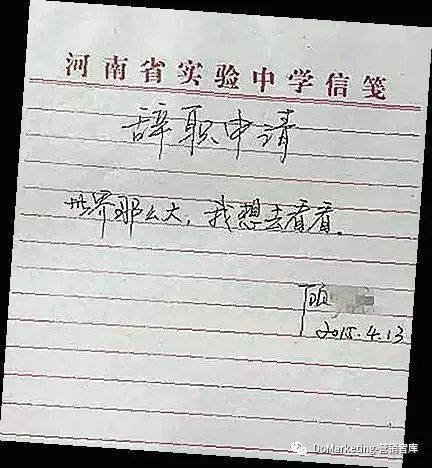 河南省实验中学信笺
辞职申请
世界那么大，我想去看看。
顾
2015.4.13
DoMarketing-营销智库